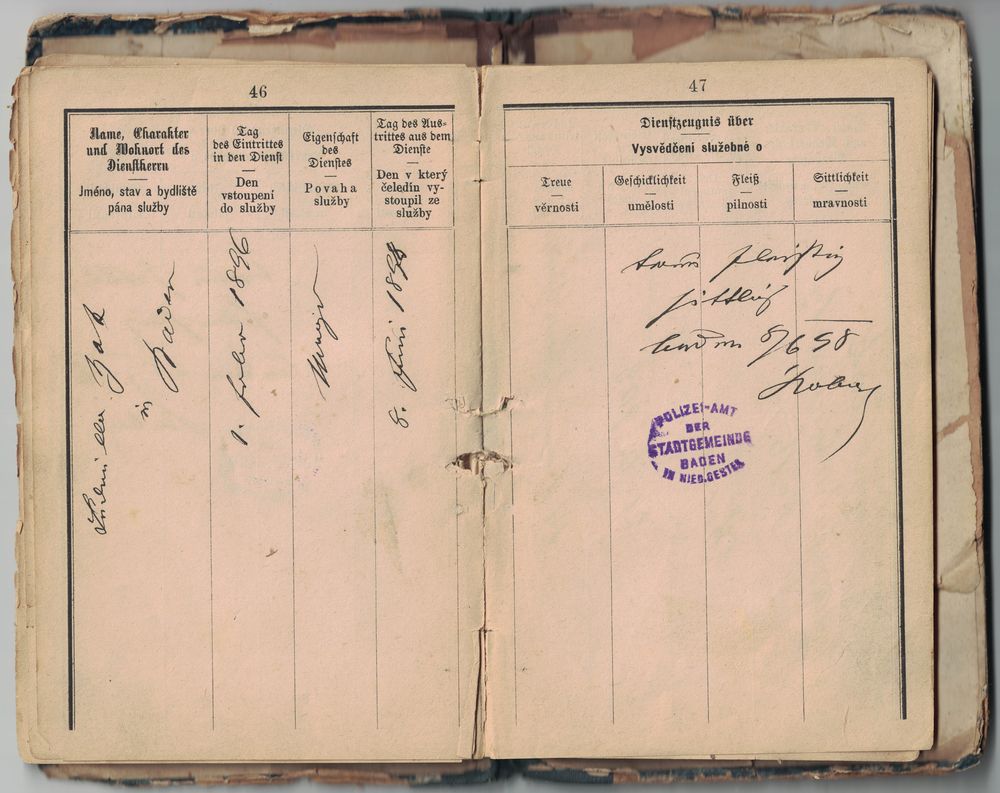 46
Name, Charakter
und Wohnort des
Dienstherrn
Jméno, stav a bydliště
pána služby
Tag
des Eintrittes
in den Dienst
Den
vstoupení
do služby
Eigenschaft
des
Dienstes
Povaha
služby
Tag des Aus-
trittes aus dem
Dienste
Den v který
čeledín vy-
stoupil ze
služby
in Baden
1896
8. Juni 1898
47
Dienstzeugnis über
Vysvědčení služebné o
Treue
věrnosti
Geschicklichkeit
umělosti
Fleiß
pilnosti
Sittlichkeit
mravnosti
treu fleißig
sittlich
Baden 8/6 98
POLIZEI-AMT
DER
STADTGEMEINDE
BADEN
IN NIED.OESTER.